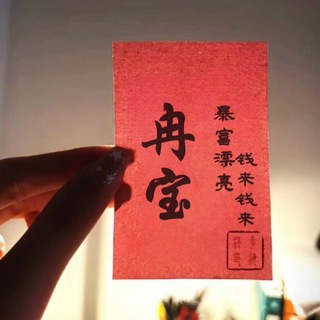 冉宝
暴富漂亮
钱来钱来